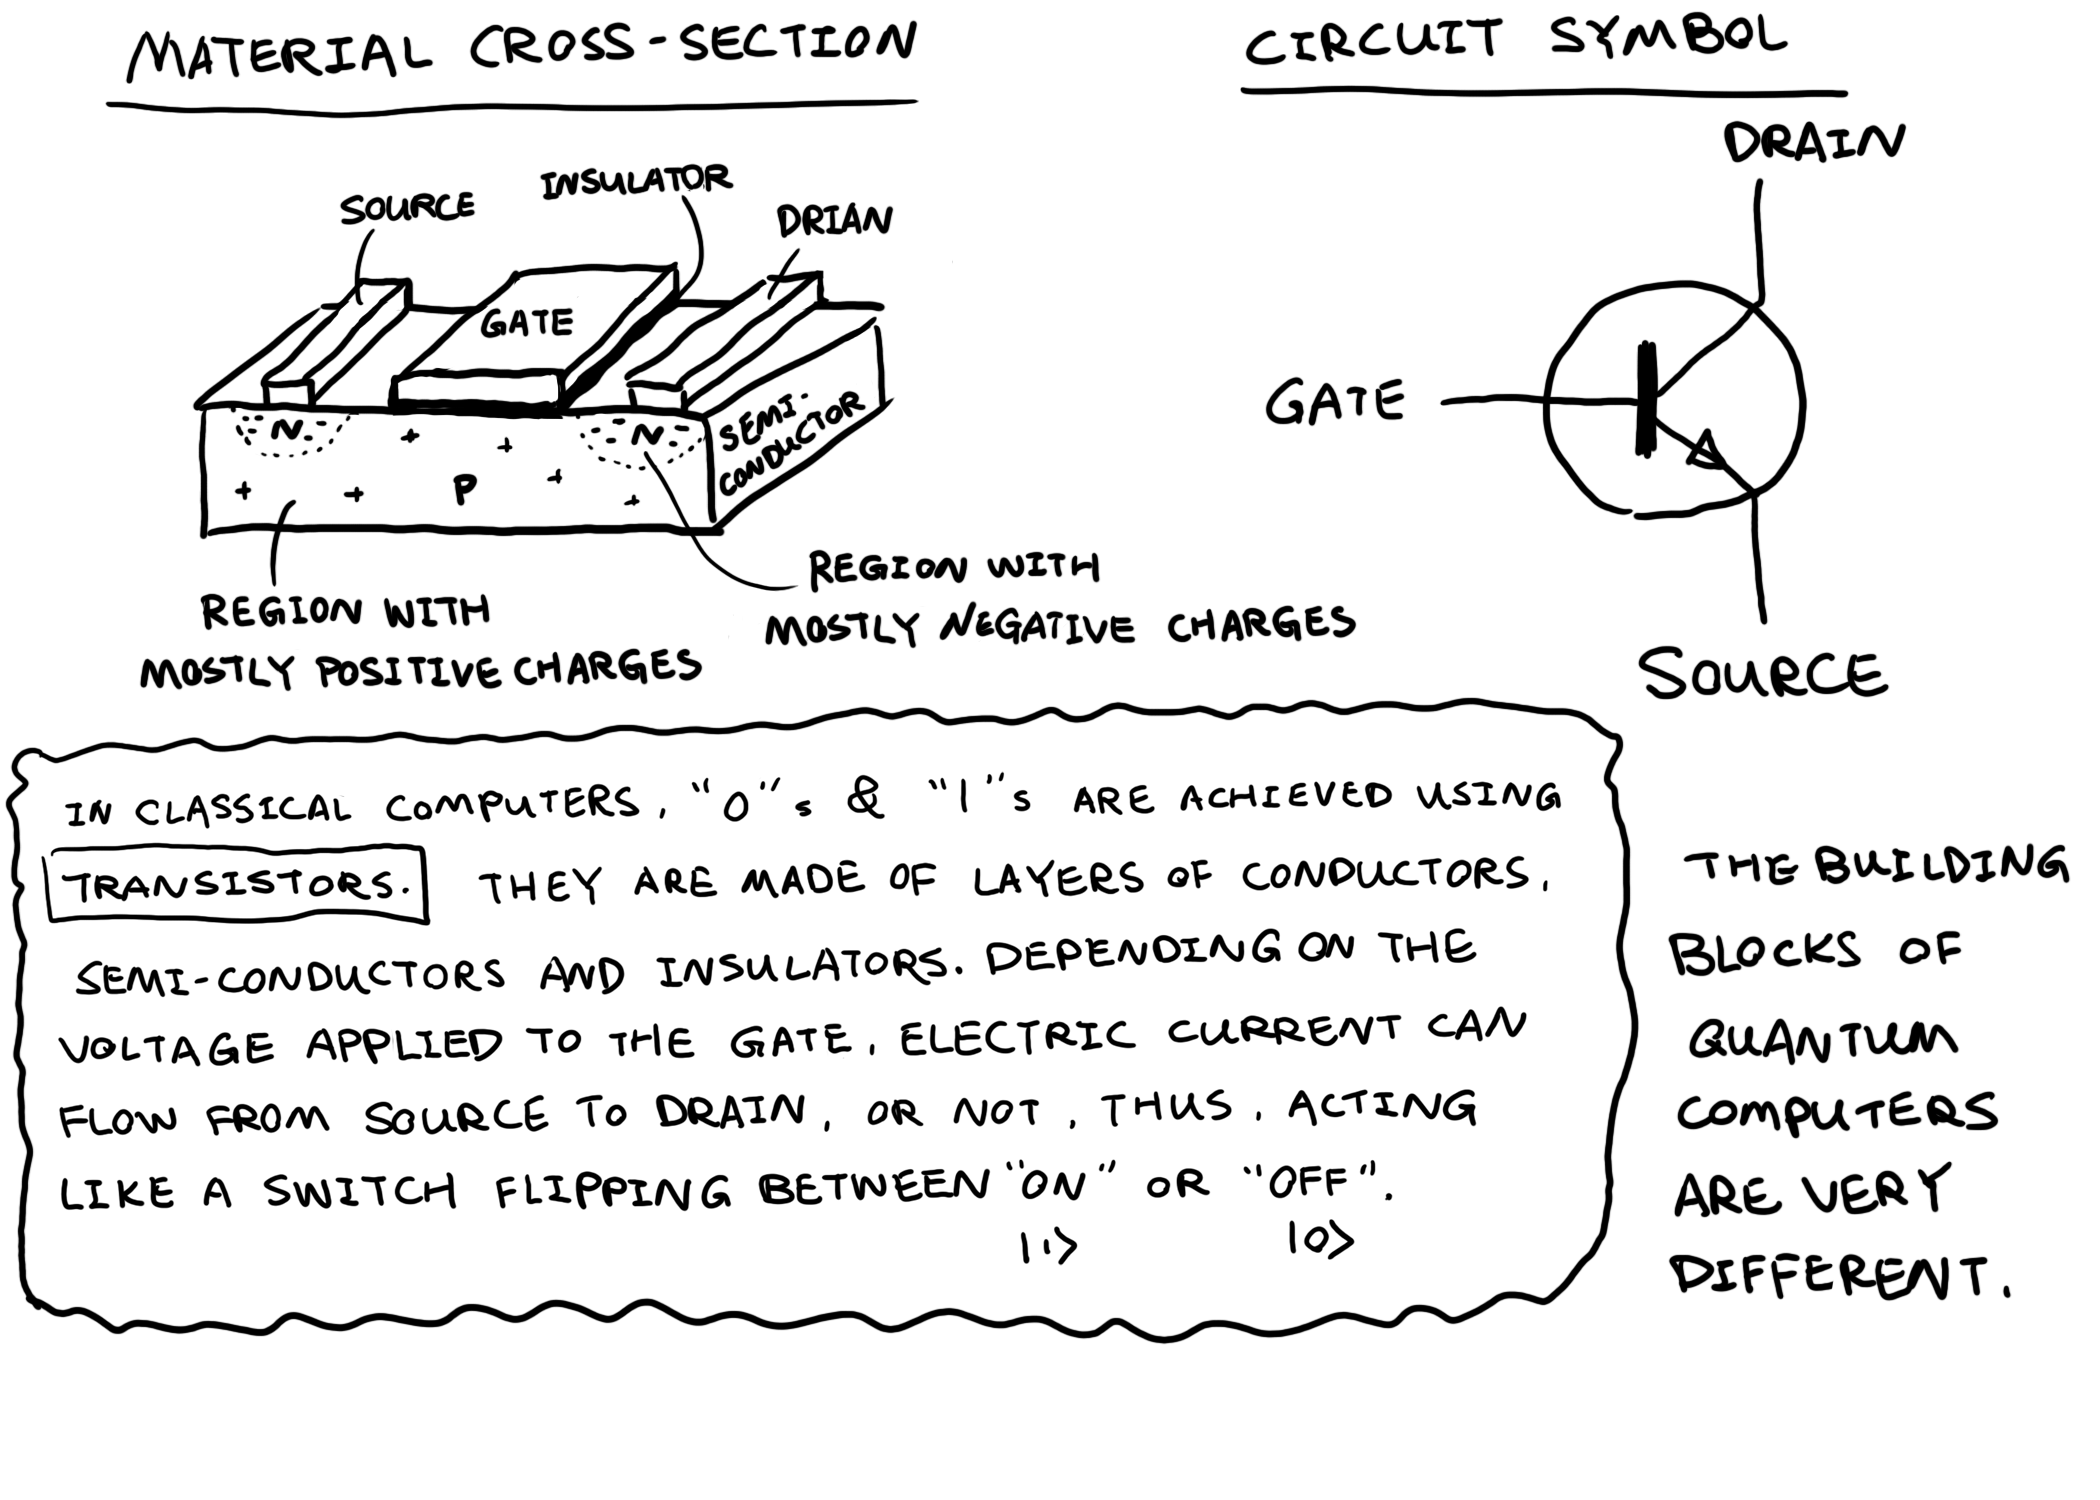 MATERIAL CROSS-SECTION
SOURCE
INSULATOR
DRIAN
GATE
N
N
P
+ + + + + + +
SEMI-
CONDUCTOR
REGION WITH
MOSTLY POSITIVE CHARGES
REGION WITH
MOSTLY NEGATIVE CHARGES
CIRCUIT SYMBOL
DRAIN
GATE
SOURCE
IN CLASSICAL COMPUTERS, "0"s & "1"s ARE ACHIEVED USING
TRANSISTORS. THEY ARE MADE OF LAYERS OF CONDUCTORS,
SEMI-CONDUCTORS AND INSULATORS. DEPENDING ON THE
VOLTAGE APPLIED TO THE GATE, ELECTRIC CURRENT CAN
FLOW FROM SOURCE TO DRAIN, OR NOT, THUS, ACTING
LIKE A SWITCH FLIPPING BETWEEN "ON" OR "OFF".
|1> |0>
THE BUILDING
BLOCKS OF
QUANTUM
COMPUTERS
ARE VERY
DIFFERENT.